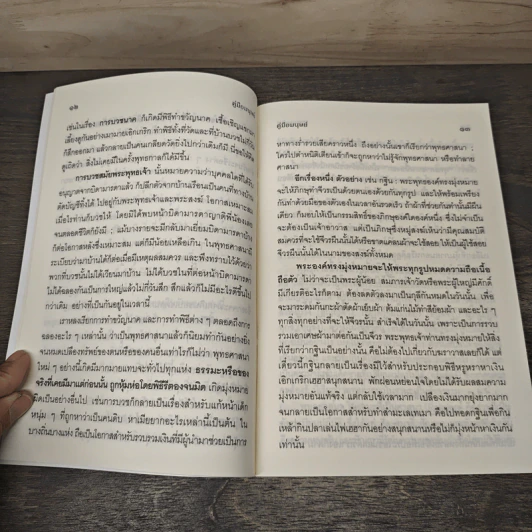 ๑๒
คู่มือมนุษย์
เช่นในเรื่อง การบวชนาค ก็เกิดมีพิธีทำขวัญนาค เชื้อเชิญแขกมา
เลี้ยงดูกันอย่างเมามายเอิกเกริก ทำพิธีทั้งที่วัดและที่บ้านบวชไม่กี่วัน
ก็สึกออกมา แล้วกลายเป็นคนเกลียดวัดยิ่งไปกว่าเดิมก็มี นี่จงให้คิด
ดูเถิดว่า สิ่งไม่เคยมีในครั้งพุทธกาลก็ได้มีขึ้น
การบวชสมัยพระพุทธเจ้า นั้นหมายความว่าบุคคลใดที่ได้รับ
อนุญาตจากบิดามารดาแล้ว ก็ปลีกตัวจากบ้านเรือนเป็นคนที่ทางบ้าน
ตัดบัญชีทิ้งได้ ไปอยู่กับพระพุทธเจ้าและพระสงฆ์ โอกาสเหมาะสม
เมื่อไรท่านก็บวชให้ โดยมิได้พบหน้าบิดามารดาญาติพี่น้องเลย
จนตลอดชีวิตก็ยังมี แม้บางรายจะมีกลับมาเยี่ยมบิดามารดาบ้าง
ก็ต่อโอกาสหลังซึ่งเหมาะสม แต่ก็มีน้อยเหลือเกิน ในพุทธศาสนามี
ระเบียบว่ามาบ้านได้ก็ต่อเมื่อมีเหตุผลสมควร และพึงทราบไว้ด้วยว่า
พวกที่บวชนั้นไม่ได้เวียนมาบ้าน ไม่ได้บวชในที่ต่อหน้าบิดามารดา
ไม่ได้ฉลองกันเป็นการใหญ่แล้วไม่กี่วันสึก สึกแล้วก็ไม่มีอะไรดีขึ้น
ไปกว่าเดิม อย่างที่เป็นกันอยู่ในเวลานี้
เราหลงเรียกการทำขวัญนาค และการทำพิธีต่าง ๆ ตลอดถึงการ
ฉลองอะไร ๆ เหล่านั้น ว่าเป็นพุทธศาสนาแล้วก็นิยมทำกันอย่างยิ่ง
จนหมดเปลืองทรัพย์ของตนหรือของคนอื่นเท่าไรก็ไม่ว่า พุทธศาสนา
ใหม่ ๆ อย่างนี้เกิดมีมากมายแทบจะทั่วไปทุกแห่ง ธรรมะหรือของ
จริงที่เคยมีมาแต่ก่อนนั้น ถูกหุ้มห่อโดยพิธีรีตองจนมิด เกิดมุ่งหมาย
เป็นอย่างอื่นไป เช่นการบวชก็กลายเป็นเรื่องสำหรับแก้หน้าเด็ก
หนุ่ม ๆ ที่ถูกหาว่าเป็นคนดิบ หาเมียยากอะไรเหล่านี้เป็นต้น ใน
บางถิ่นบางแห่ง ถือเป็นโอกาสสำหรับรวบรวมเงินที่มีผู้นำมาช่วยเป็นการ
คู่มือมนุษย์
๑๓
หาทางร่ำรวยเสียคราวหนึ่ง ถึงอย่างนั้นเขาก็เรียกว่าพุทธศาสนา
ใครไปตำหนิติเตียนเข้าก็จะถูกหาว่าไม่รู้จักพุทธศาสนา หรือทำลาย
ศาสนา
อีกเรื่องหนึ่ง ตัวอย่าง เช่น กฐิน พระพุทธองค์ทรงมุ่งหมายจะ
ให้ภิกษุทำจีวรเป็นด้วยตนเองด้วยกันทุกรูป และให้พร้อมเพรียง
กันทำด้วยมือของตัวเองในเวลาอันรวดเร็ว ถ้าผ้าที่ช่วยกันทำนั้นมีผืน
เดียว ก็มอบให้เป็นกรรมสิทธิ์ของภิกษุองค์ใดองค์หนึ่ง ซึ่งไม่จำเป็น
จะต้องเป็นเจ้าอาวาส แต่เป็นภิกษุซึ่งหมู่สงฆ์เห็นว่ามีคุณสมบัติ
สมควรที่จะใช้จีวรผืนนั้นได้หรือขาดแคลนผ้าจะใช้สอย ให้เป็นผู้ใช้สอย
จีวรผืนนั้นได้ในนามของสงฆ์ทั้งหมด
พระองค์ทรงมุ่งหมายจะให้พระทุกรูปหมดความถือเนื้อ
ถือตัว ไม่ว่าจะเป็นพระผู้น้อย สมภารเจ้าวัดหรือพระผู้ใหญ่มีศักดิ์
มีเกียรติอะไรก็ตาม ต้องลดตัวลงมาเป็นกุลีกันหมดในวันนั้น เพื่อ
จะมาระดมกันกะผ้าตัดผ้าเย็บผ้า ต้มแก่นไม้ทำสีย้อมผ้า และอะไร ๆ
ทุกสิ่งทุกอย่างที่จะให้จีวรนั้น สำเร็จได้ในวันนั้น เพราะเป็นการรวบ
รวมเอาเศษผ้ามาต่อกันเป็นจีวร พระพุทธเจ้าท่านทรงมุ่งหมายให้สิ่ง
ที่เรียกว่ากฐินเป็นอย่างนั้น คือไม่ต้องไปเกี่ยวกับฆราวาสเลยก็ได้ แต่
เดี๋ยวนี้กฐินกลายเป็นเรื่องมีไว้สำหรับประกอบพิธีหรูหราหาเงิน
เอิกเกริกเฮฮาสนุกสนาน พักผ่อนหย่อนใจโดยไม่ได้รับผลสมความ
มุ่งหมายอันแท้จริง แต่กลับใช้เวลามาก เปลืองเงินมากยุ่งยากมาก
จนกลายเป็นโอกาสสำหรับทำสำมะเลเทเมา คือไปทอดกฐินเพื่อกิน
เหล้ากินปลาเล่นไพ่เฮฮากันอย่างสนุกสนานหรือไม่ก็มุ่งหน้าหาเงินกัน
เท่านั้น